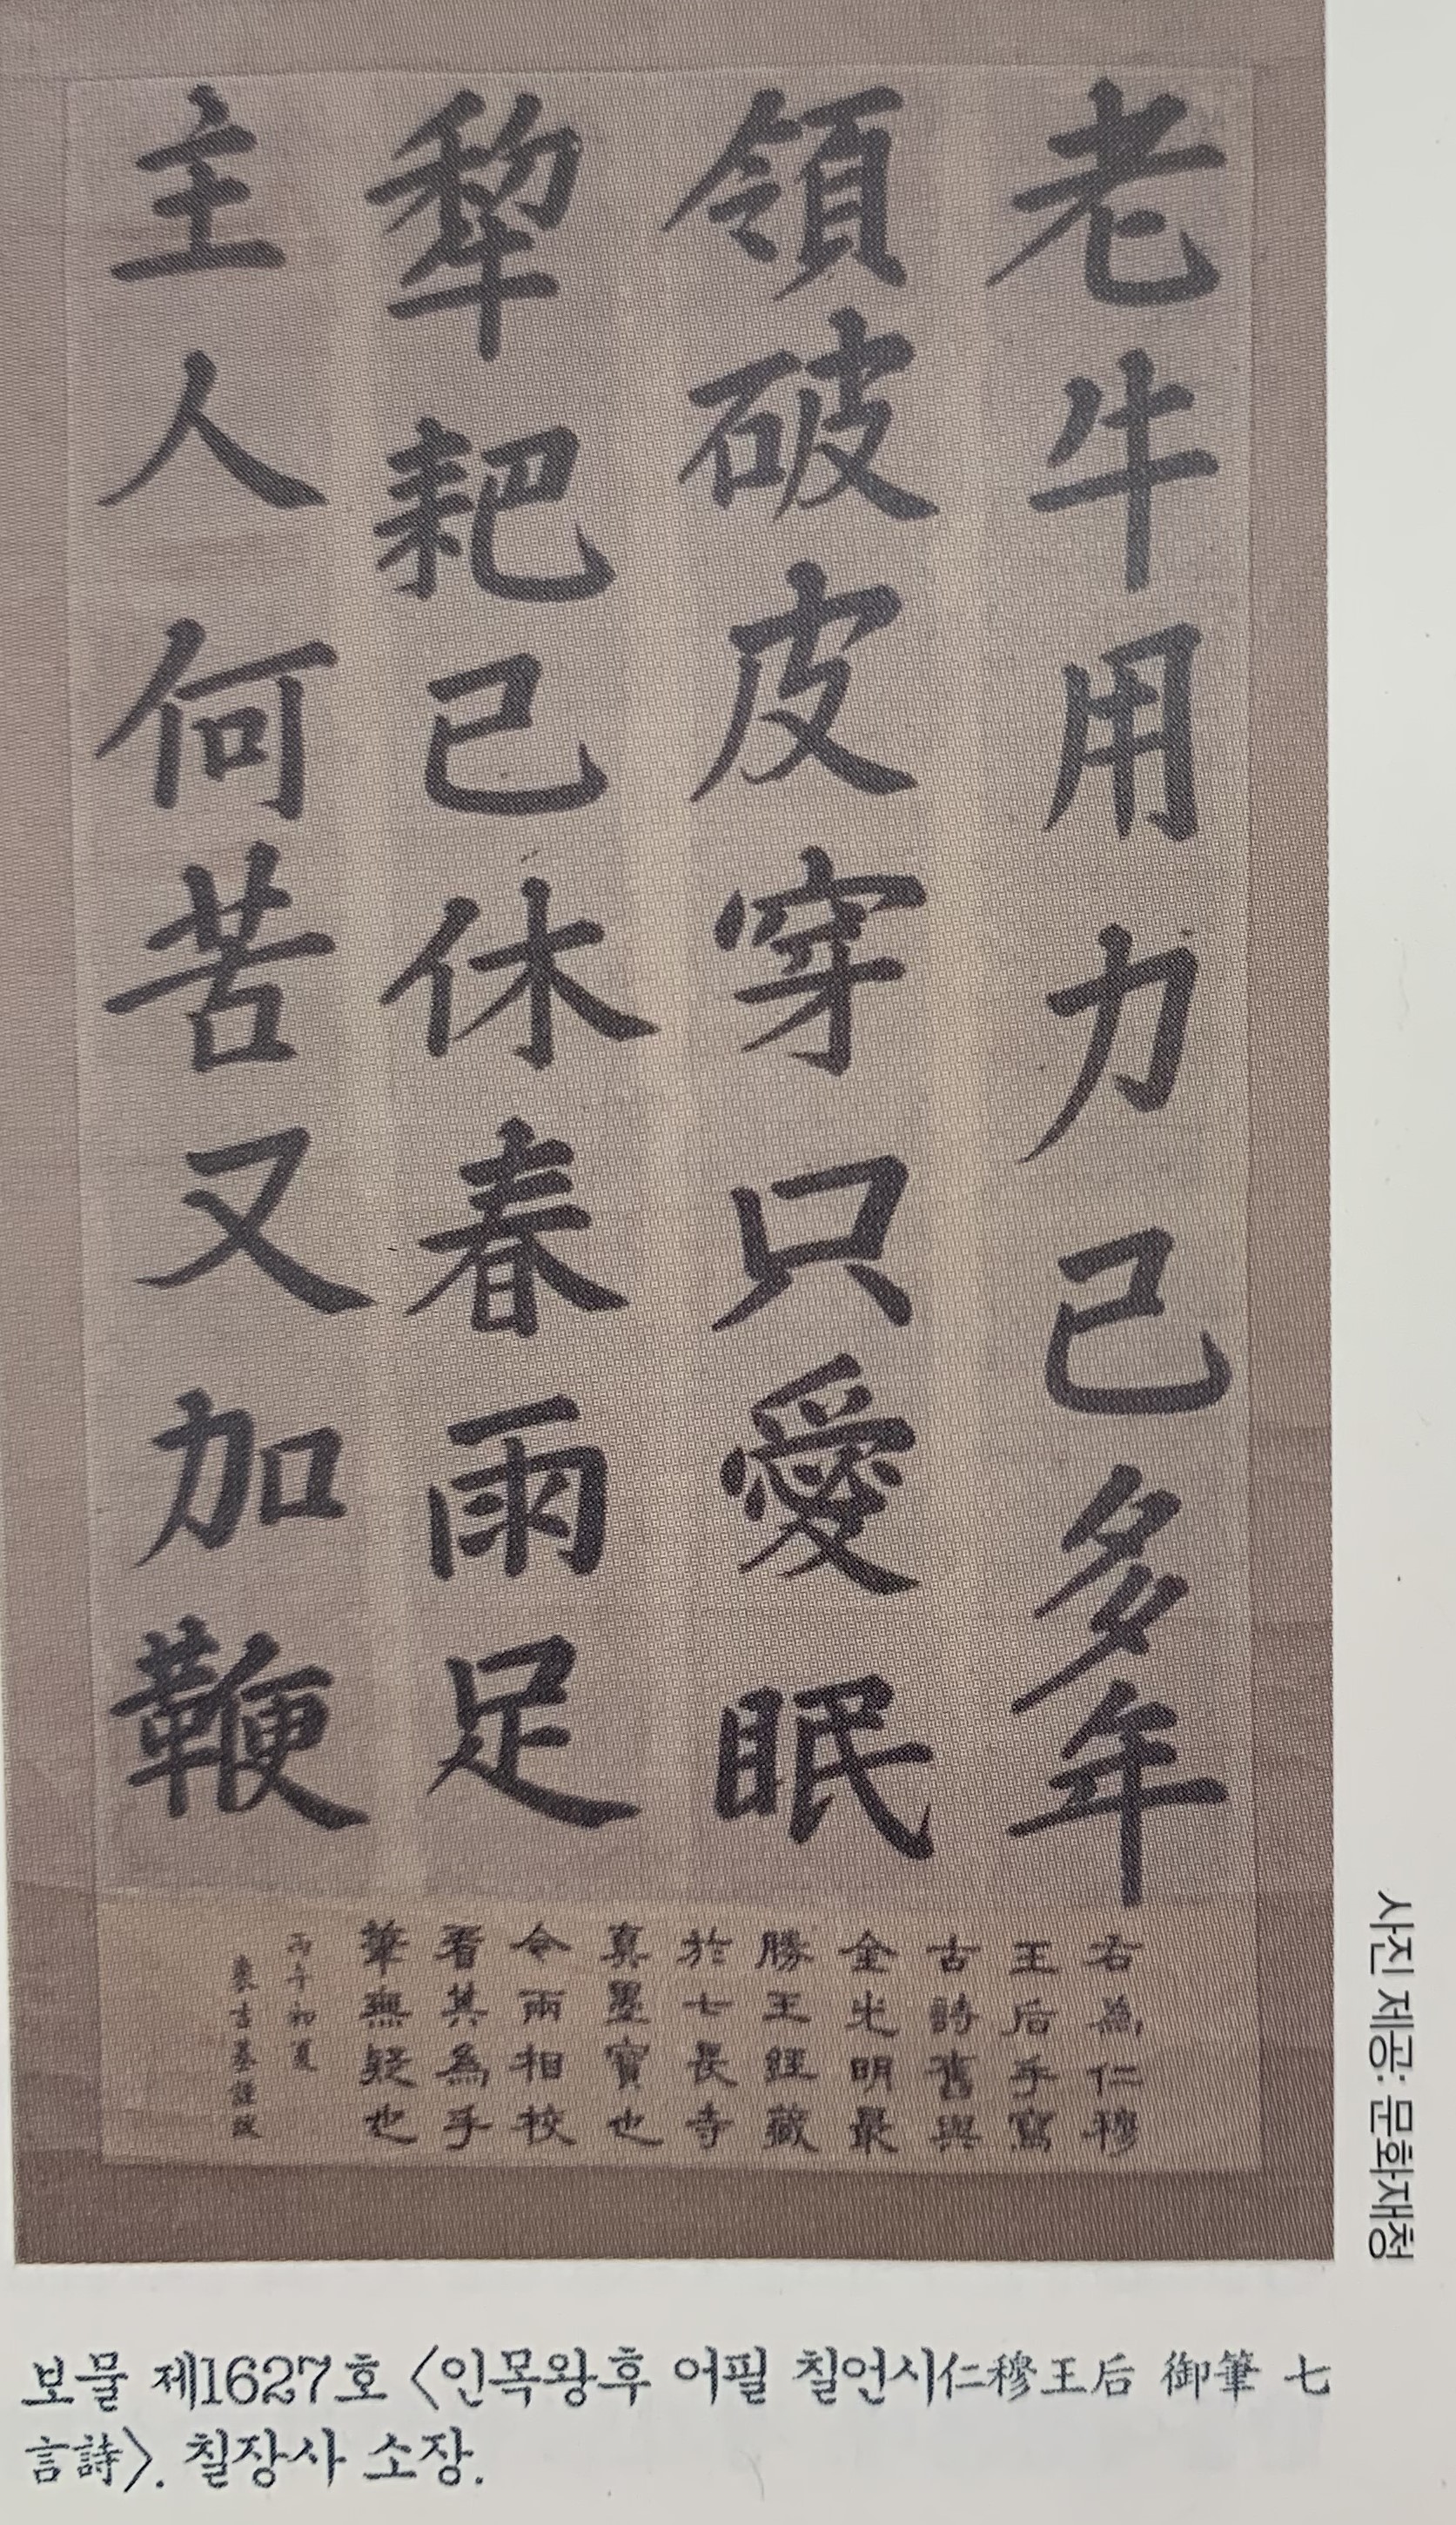 老牛用力已多年
領破皮穿只愛眠
犂耙已休春雨足
主人何苦又加鞭
右為仁穆
王后手寫
古詩舊與
金光明最
勝王經藏
於七長寺
真墨寶也
今兩相校
看其為手
筆無疑也
丙午初夏
裵吉基謹識
사진 제공: 문화재청
보물 제1627호 〈인목왕후 어필 칠언시仁穆王后 御筆 七
言詩〉. 칠장사 소장.